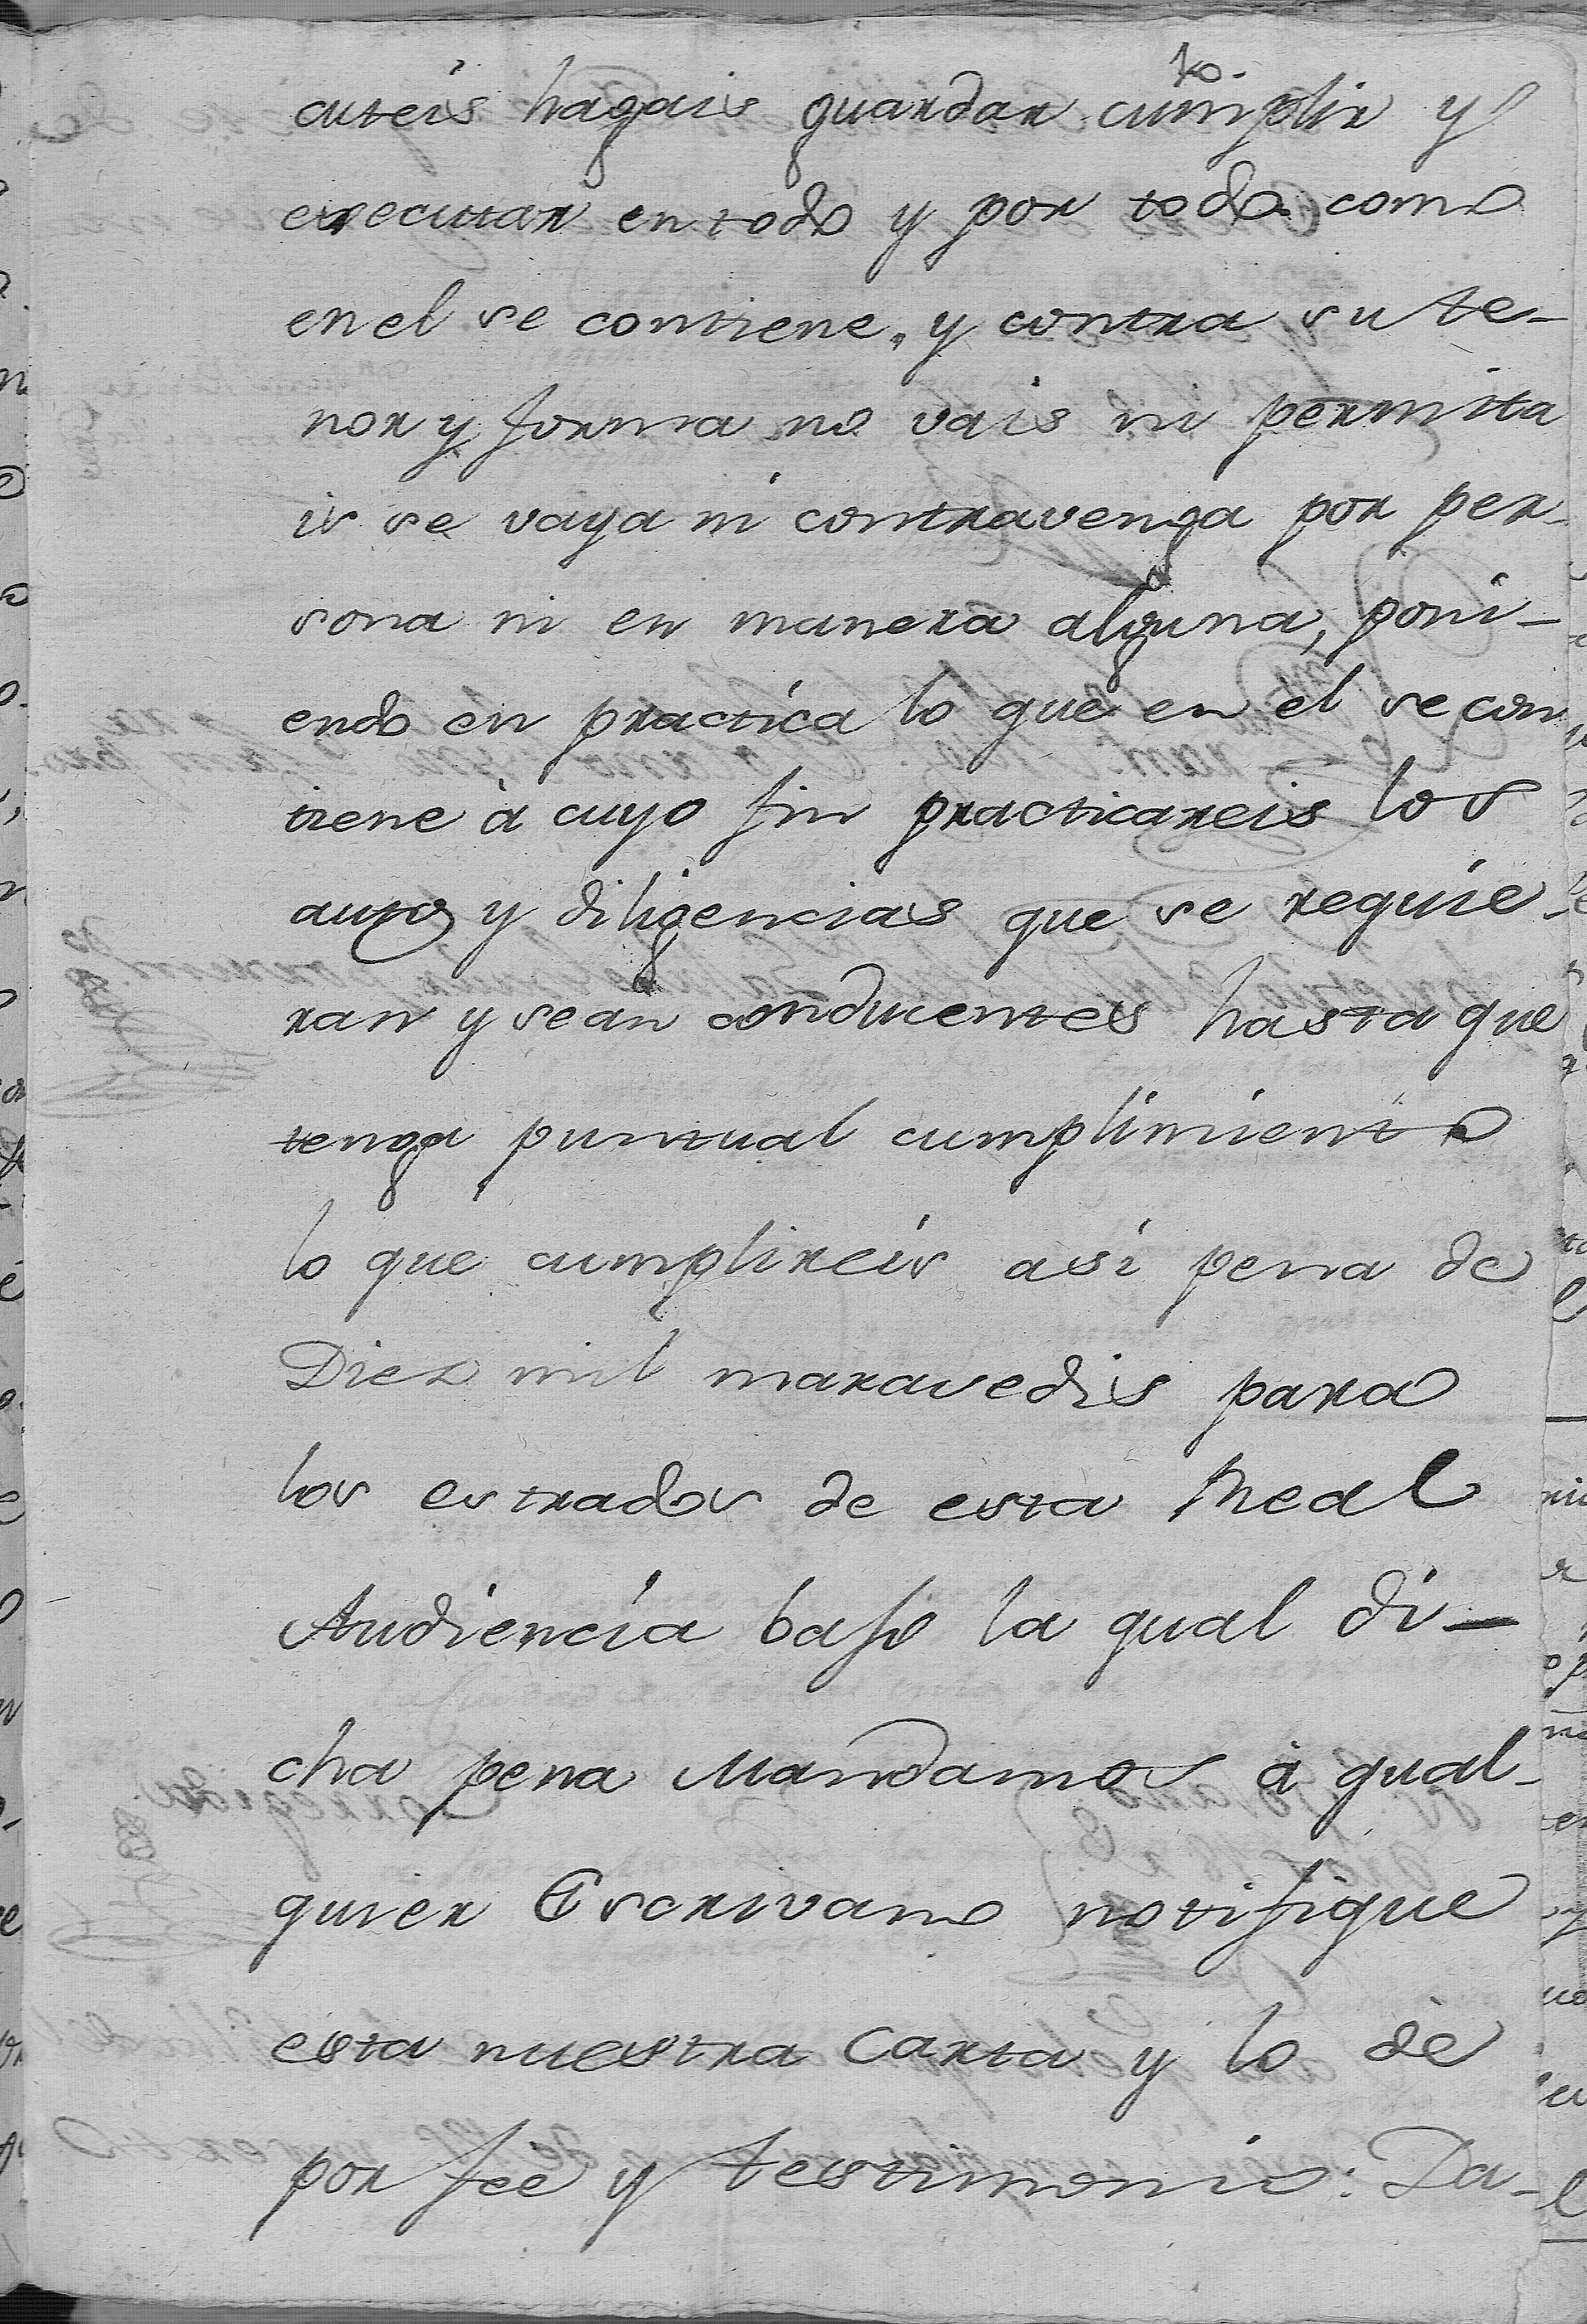 10.
cuteis hagais guardar cumplir y
executar en todo y por todo como
en el se contiene, y contra su te-
nor y forma no vais ni permita
is se vaya ni contravenga por per-
sona ni en manera alguna, poni-
endo en practica lo que en él se con
tiene à cuyo fin practicareis los
autos y diligencias que se requie-
ran y sean conducentes hasta que
tenga puntual cumplimiento
lo que cumplireis asi pena de
Diez mil maravedis para
los estrados de esta Real
Audiencia bajo la qual di-
cha pena Mandamos à qual-
quier Escrivano notifique
esta nuestra Carta y lo dè
por feè y testimonio: Da-